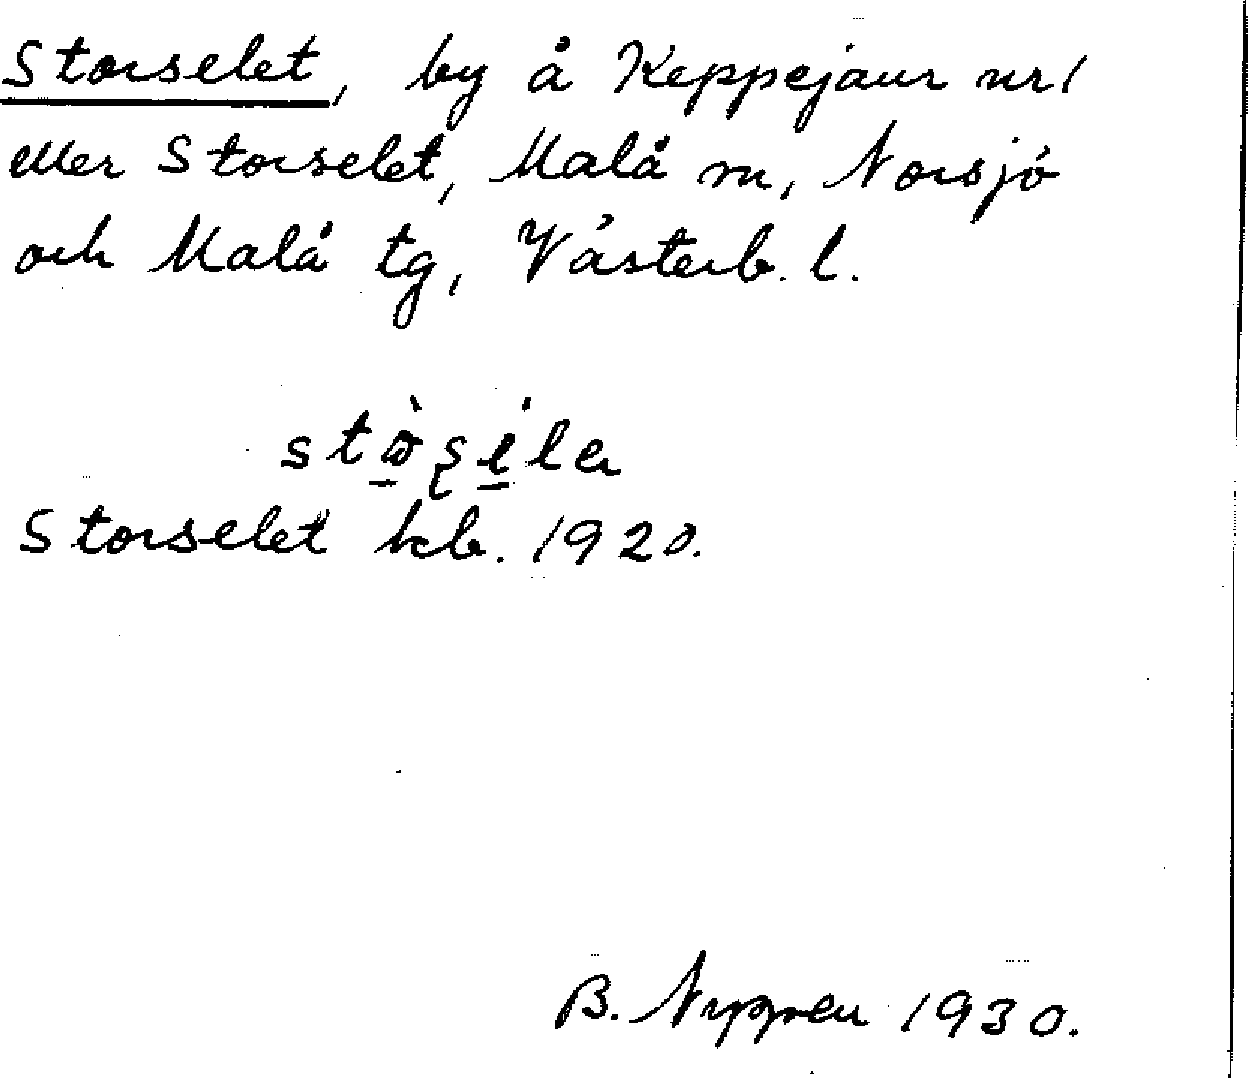 Storselet, by å Keppejaur nr 1
eller Storselet, Malå m, Norsjö
och Malå tg, Västerb. l.
Storselet kcb. 1920.
B. 1930.